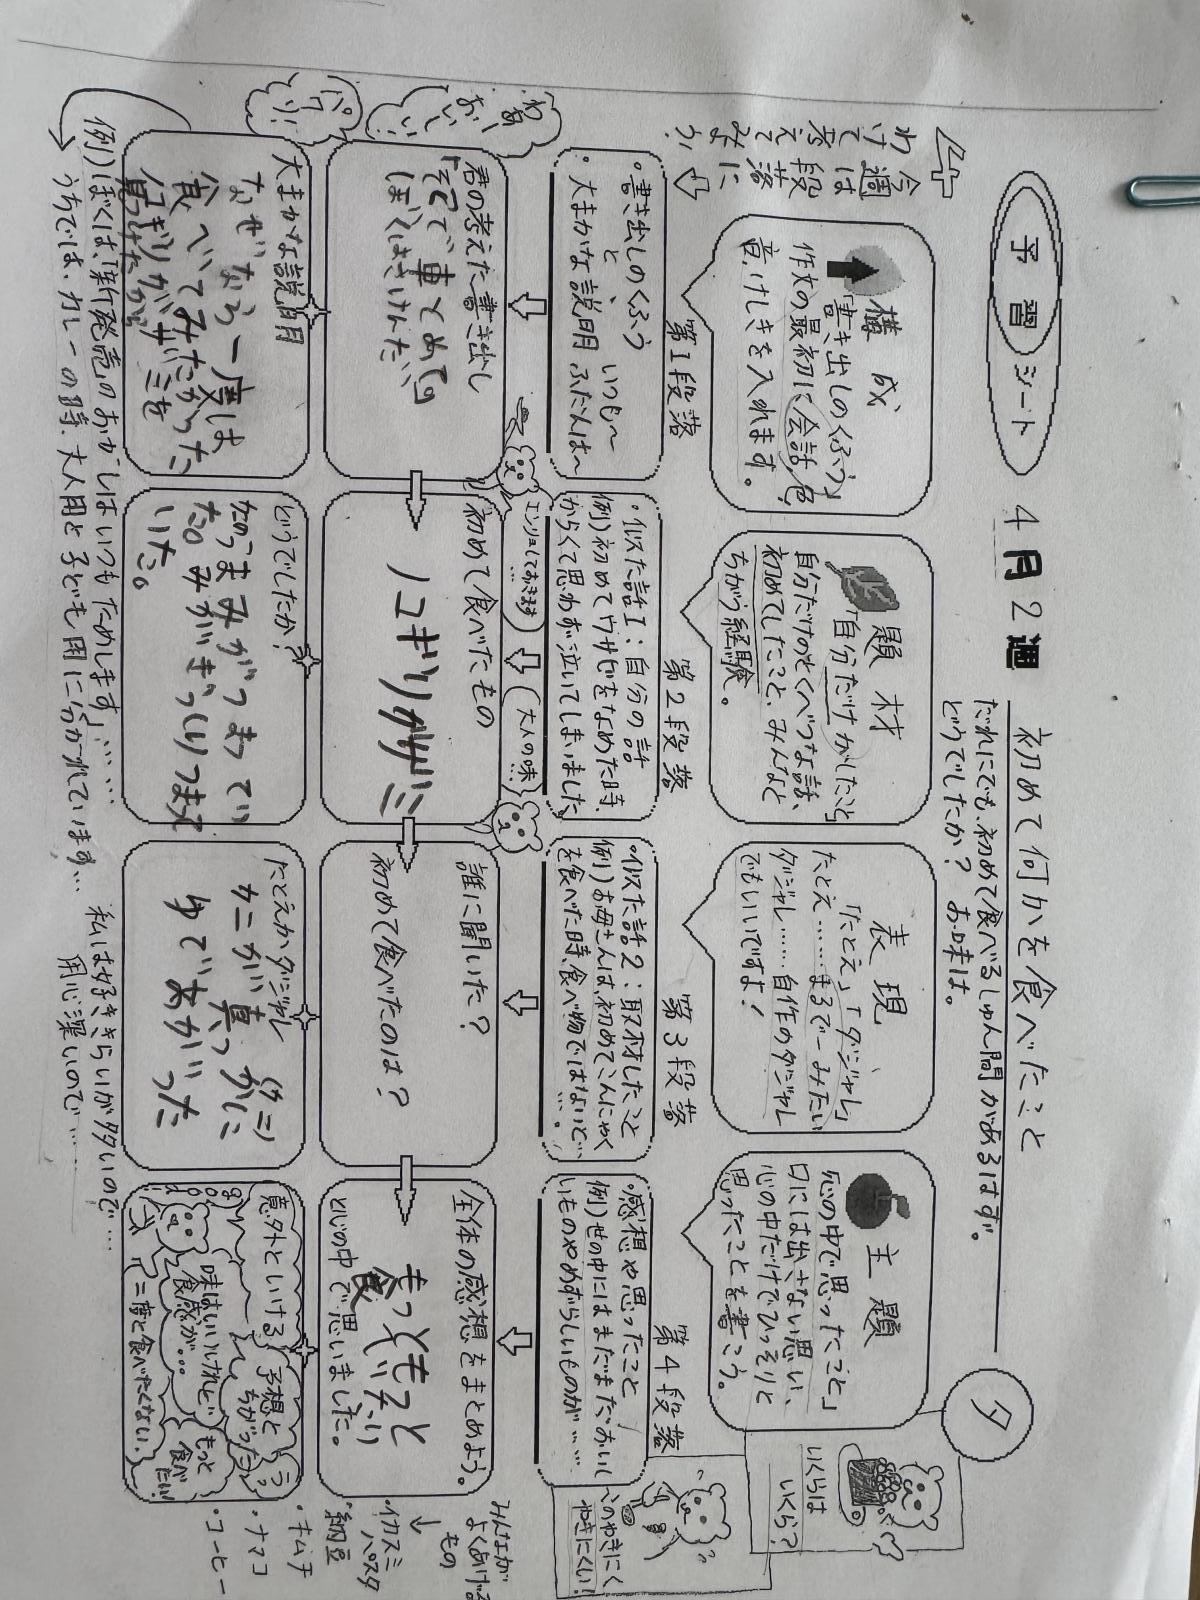 予習シート
4月2週
初めて何かを食べたこと
だれにでも、初めて食べるしゅん間があるはず。
どうでしたか？お味は。
タ
いくらは
いくら？
今週は段落に
わけて考えて
みよう！
構成
「書き出しのくふう」
作文の最初に会話、色、
音、けしきを入れます。
題材
「自分だけがしたこと」
自分だけのとくべつな話、
初めてしたこと、みんなと
ちがう経験。
表現
「たとえ」「ダジャレ」
たとえ……まるで〜みたい
ダジャレ……自作のダジャレ
でもいいですよ！
主題
「心の中で思ったこと」
口には出さない思い、
心の中だけでひっそりと
思ったことを書こう。
第1段落
・書き出しのくふう
と
・大まかな説明
いつも〜
ふだんは〜
第2段落
・似た話1：自分の話
例）初めてワサビをなめた時、
からくて思わず泣いてしまいました
第3段落
・似た話2：取材したこと
例）お母さんは初めてこんにゃく
を食べた時、食べ物ではないと…
….
第4段落
・感想や思ったこと
例）世の中にはまだまだおいし
いものやめずらしいものが……
このやきにく
やきにくい！
わあ
おい
しい！
パク
リ！
エンリョしておきます
…
大人の味…
君の考えた書き出し
「そこで車とめて」
ぼくはさけんだ。
初めて食べたもの
ノコギリガザミ
誰に聞いた？
初めて食べたのは？
全体の感想をまとめよう。
もっともっと
食べたい
と心の中で思いました。
大まかな説明
なぜなら一度は
食べてみたかった
ノコギリガザミを
見つけたから
どうでしたか？
かのうまみがつまってい
た。みがぎっしりつまって
いた。
たとえかダジャレ
カニが真っかに
ゆであがった
意外といける
予想と
ちがった
味はいいけれど
食感が…
もっと
食べ
たい！
二度と食べたくない、
みんなが
よくあげる
もの
・イカスミ
パスタ
・納豆
・キムチ
・ナマコ
・コーヒー
例）ぼくは、「新発売」のおかしはいつもためします」……
うちでは、カレーの時、大人用と子ども用に分かれています…
私は好ききらいが多いので…
用心深いので……